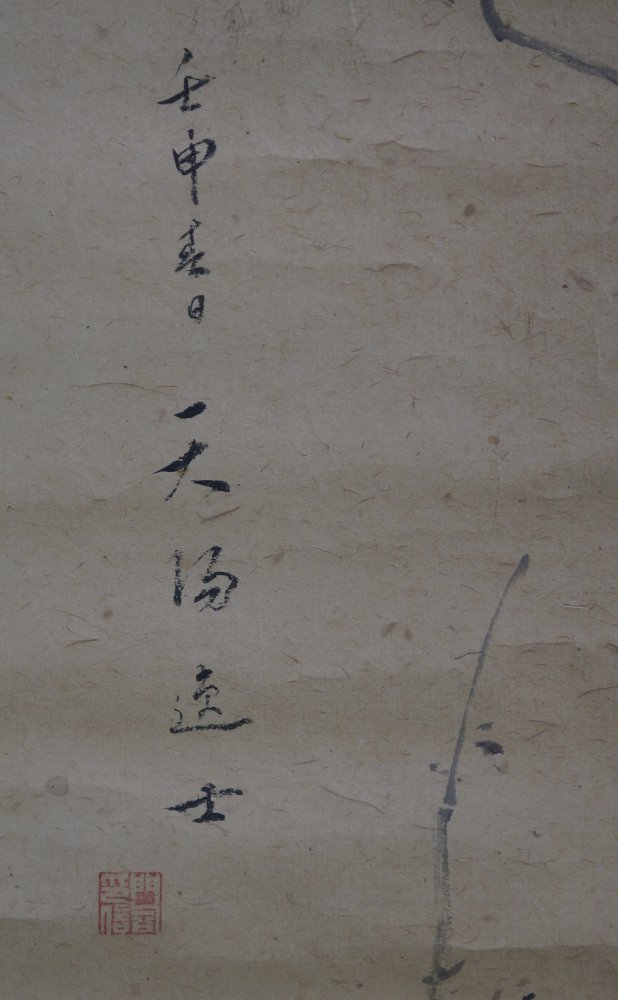 壬申春日 天陽逸士